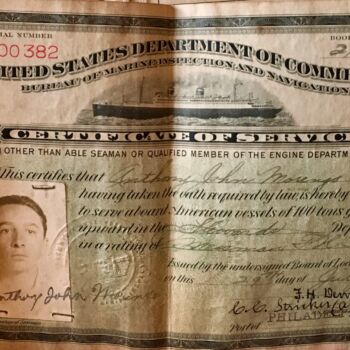 IAL NUMBER
BOOK
00 382
2
UNITED STATES DEPARTMENT OF COMM
BUREAU OF MARINE INSPECTION AND NAVIGATION
CERTIFICATE OF SERVIC
OTHER THAN ABLE SEAMAN OR QUALIFIED MEMBER OF THE ENGINE DEPARTM
This certifies that Anthony John
having taken the oath required by law, is hereby
to serve aboard American vessels of 100 tons g
upward in the Stewards Dep
in a rating of
by the undersigned Board of Loc
on this 29 day of
F. H.
Anthony John
C. C.
Port of PHILADELP